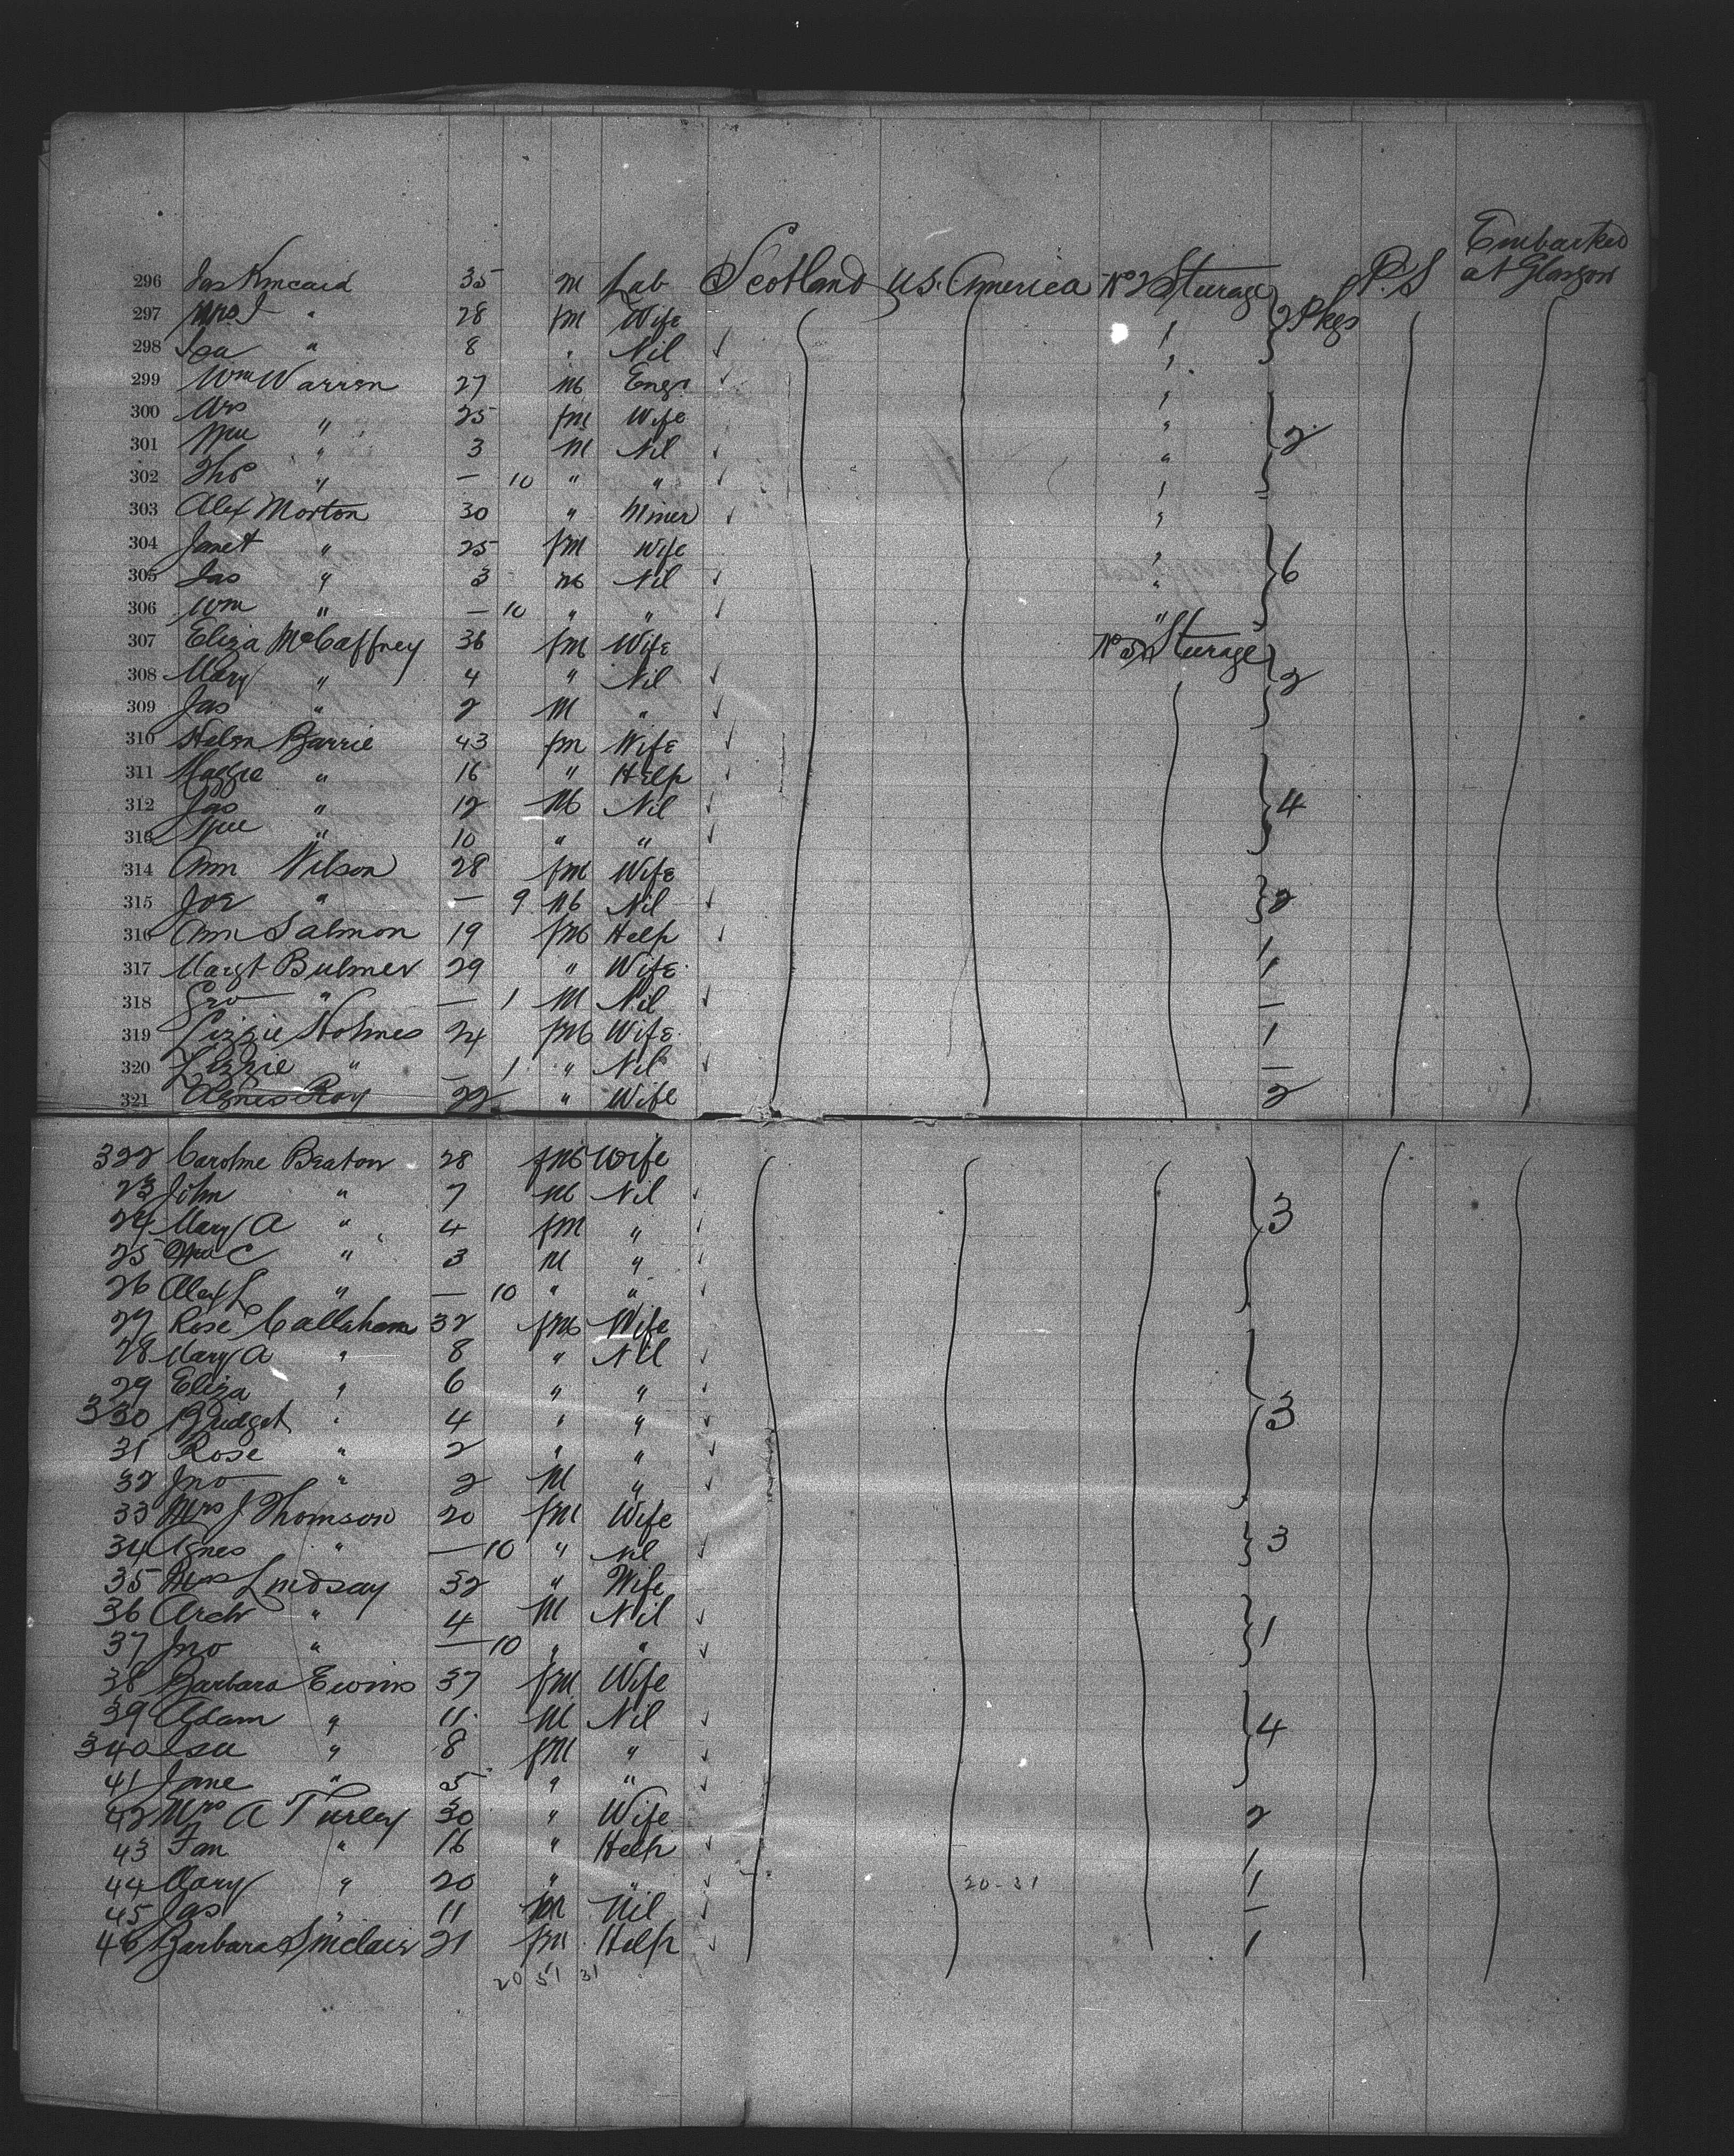 Embarked
296 Jas Kincaid 35 M Lab Scotland U.S. America No 2 Sturage 2 Pkgs P.S at Glasgow
297 Mrs J " 28 fM Wife "
298 Isa " 8 " Nil ✓ "
299 Wm Warren 27 M Engr ✓ "
300 Mrs " 25 fM Wife " 2
301 Wm " 3 M Nil ✓ "
302 Tho " — 10 " " ✓ "
303 Alex Morton 30 " Miner ✓ "
304 Janet " 25 fM Wife " 6
305 Jas " 3 M Nil ✓ "
306 Wm " — 10 " " ✓ "
307 Eliza McCaffney 36 fM Wife No Sturage
308 Mary " 4 " Nil ✓ 2
309 Jas " 2 M " ✓
310 Helen Barrie 43 fM Wife ✓
311 Maggie " 16 " Help ✓
312 Jas " 12 M Nil ✓ 4
313 Wm " 10 " " ✓
314 Ann Nilson 28 fM Wife
315 Joe " — 9 M Nil ✓ 2
316 Ann Salmon 19 fM Help ✓ 1
317 Margt Bulmer 29 " Wife 1
318 Geo " — 1 M Nil ✓ —
319 Lizzie Holmes 24 fM Wife 1
320 Lizzie " — 1 " Nil ✓ —
321 Agnes Roy 22 " Wife 2
322 Caroline Beaton 28 fM Wife
23 John " 7 M Nil ✓
24 Mary A " 4 fM " ✓ 3
25 Wm C " 3 M " ✓
26 Alex L " — 10 " " ✓
27 Rose Callaham 32 fM Wife
28 Mary A " 8 " Nil ✓
29 Eliza " 6 " " ✓
330 Bridget " 4 " " ✓ 3
31 Rose " 2 " " ✓
32 Jno " 2 M " ✓
33 Mrs J Thomson 20 fM Wife
34 Agnes " — 10 " Nil ✓ 3
35 Mrs Lindsay 32 " Wife
36 Arch " 4 M Nil ✓ 1
37 Jno " — 10 " " ✓
38 Barbara Ewins 37 fM Wife
39 Adam " 11 M Nil ✓ 4
340 Isa " 8 fM " ✓
41 Jane " 5 " " ✓
42 Mrs A Turley 30 " Wife 2
43 Fan " 16 " Help ✓ 1
44 Mary " 20 " " ✓ 20-31 1
45 Jas " 11 M Nil ✓ —
46 Barbara Sinclair 21 fM Help ✓ 1
20 51 31